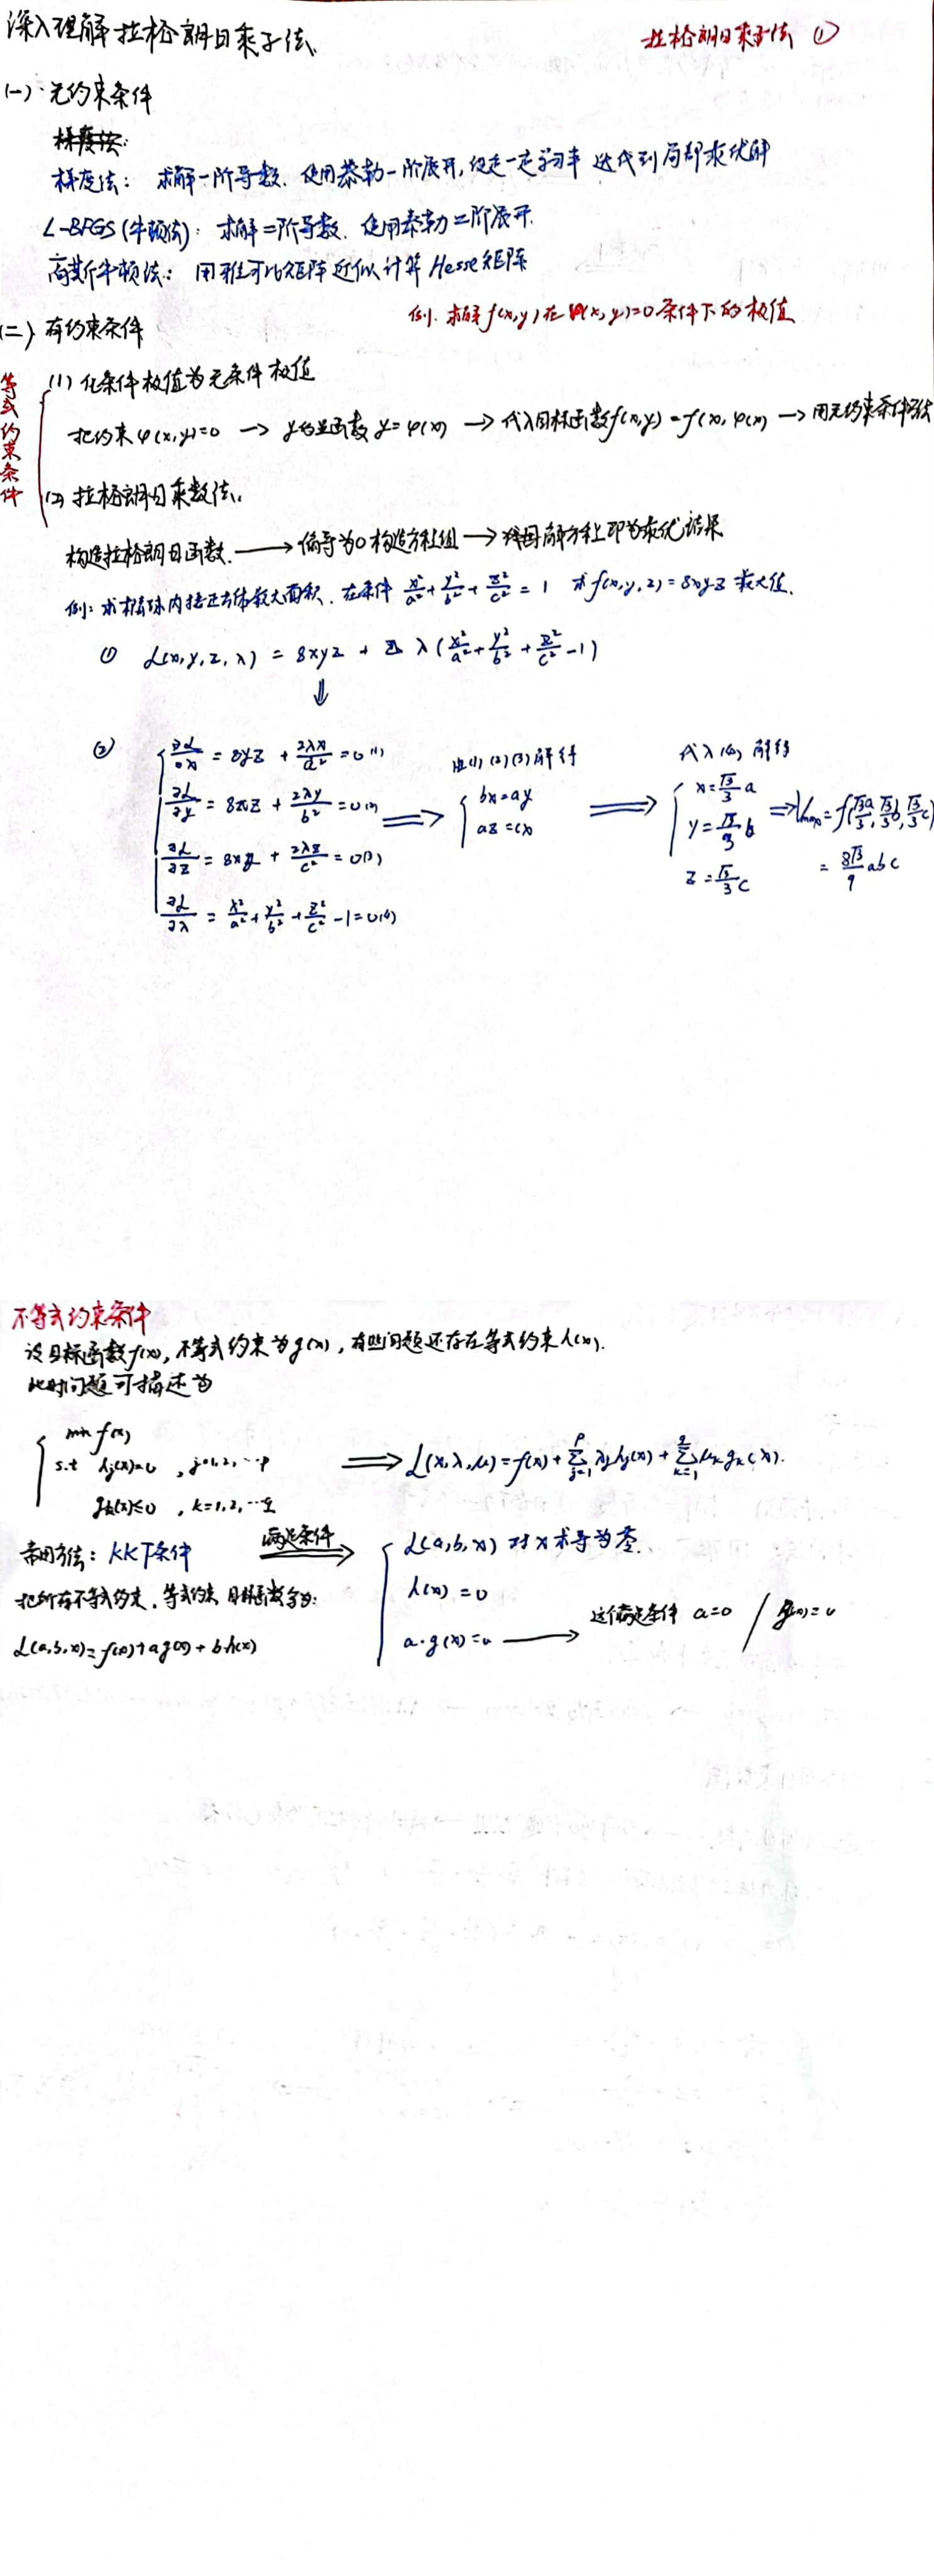 深入理解拉格朗日乘子法.
拉格朗日乘子法 ①
(一) 无约束条件
梯度法: 求解一阶导数. 使用泰勒一阶展开, 仅走一定学习率 迭代到局部最优解
L-BFGS (牛顿法): 求解二阶导数. 使用泰勒二阶展开.
高斯牛顿法: 用雅可比矩阵近似计算 Hesse矩阵
例. 求解 f(x,y) 在 φ(x,y)=0 条件下的极值
(二) 有约束条件
等式约束条件
(1) 化条件极值为无条件极值
把约束 φ(x,y)=0 → y的显函数 y=φ(x) → 代入目标函数 f(x,y) = f(x, φ(x)) → 用无约束条件解法
(2) 拉格朗日乘数法.
构造拉格朗日函数. → 偏导为0 构造方程组 → 解方程 即为最优结果
例: 求椭球内接正方体最大面积. 在条件 x²/a² + y²/b² + z²/c² = 1 求 f(x,y,z) = 8xyz 最大值.
① L(x,y,z,λ) = 8xyz + λ(x²/a² + y²/b² + z²/c² - 1)
⇓
② ∂L/∂x = 8yz + 2λx/a² = 0 (1)
∂L/∂y = 8xz + 2λy/b² = 0 (2)
∂L/∂z = 8xy + 2λz/c² = 0 (3)
∂L/∂λ = x²/a² + y²/b² + z²/c² - 1 = 0 (4)
⇒ 由(1)(2)(3)解得
bx=ay
az=cx
⇒ 代入(4) 解得
x=√3/3 a
y=√3/3 b
z=√3/3 c
⇒ Vmax = f(√3/3 a, √3/3 b, √3/3 c)
= 8√3/9 abc
不等式约束条件
设目标函数f(x), 不等式约束为g(x), 有些问题还存在等式约束h(x).
此时问题可描述为
min f(x)
s.t hj(x)=0 , j=1,2,…p
gk(x)≤0 , k=1,2,…q
⇒ L(x,λ,μ) = f(x) + Σ(j=1→p) λj hj(x) + Σ(k=1→q) μk gk(x).
常用方法: KKT条件
满足条件 ⇒
把所有不等式约束. 等式约束 目标函数写为:
L(a,b,x) = f(x) + ag(x) + b·h(x)
L(a,b,x) 对 x 求导为零.
h(x) = 0
a·g(x) = 0 → 这个满足条件 a=0 / g(x)=0